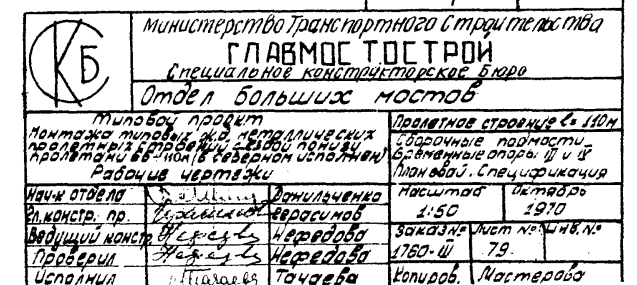 СКБ
Министерство Транспортного Строительства
ГЛАВМОСТОСТРОЙ
Специальное конструкторское Бюро
Отдел больших мостов
Типовой проект
Монтажа типовых ж.д. металлических
пролетных строений с ездой понизу
пролетами 66-110м (в северном исполнен)
Рабочие чертежи
Пролетное строение l= 110м
Сборочные подмости
Временные опоры III и IV
План свай. Спецификация
Нач-к отдела Данильченко
Гл. констр. пр. Герасимов
Ведущий констр. Нефедова
Проверил Нефедова
Исполнил Тачаева
Масштаб Октябрь
1:50 1970
Заказ № Лист № Инв. №
1760-III 79.
Копиров. Мастерова